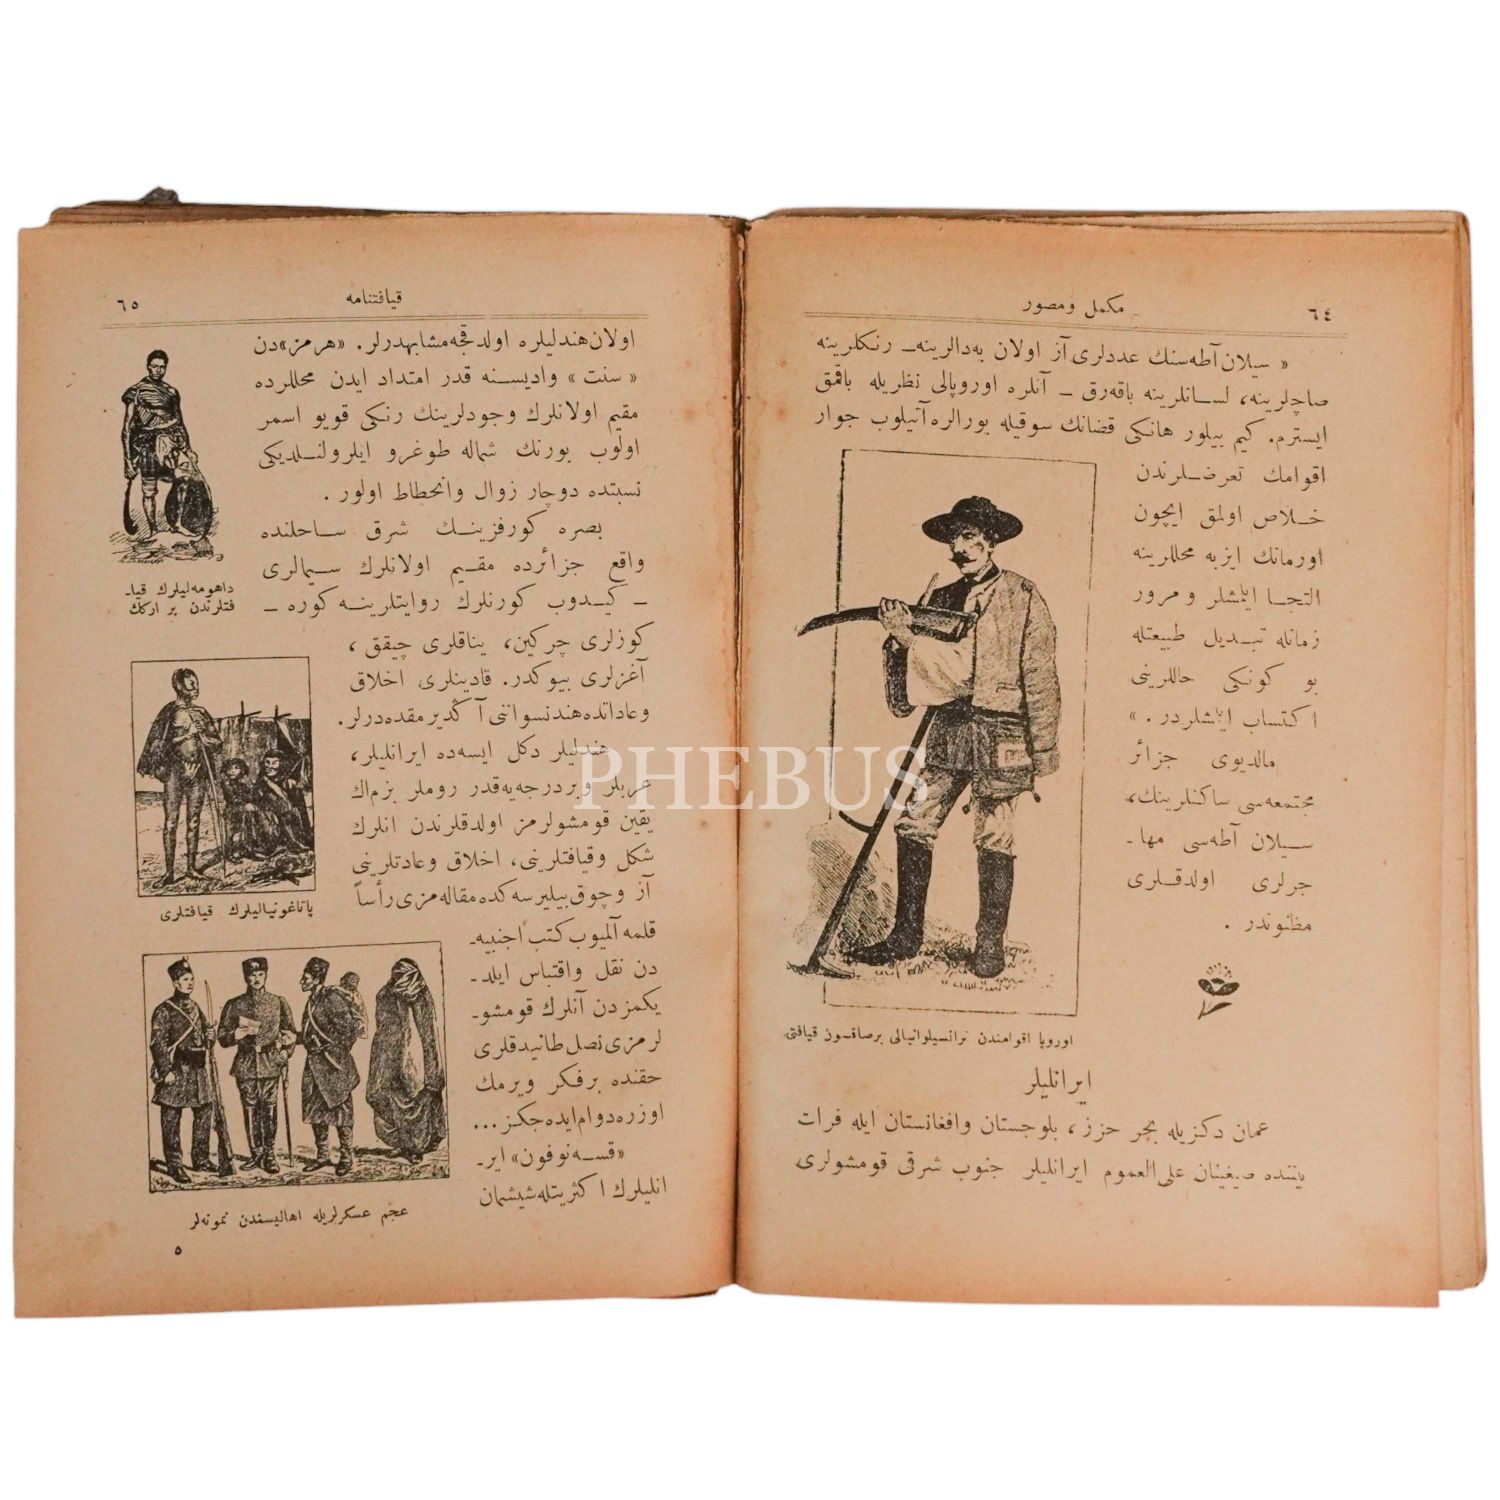 ٦٤
مكمل و مصور
« سيلان آطه‌سنك عددلرى آز اولان به‌دالرينه ـ رنكلرينه
صاچلرينه، لسانلرينه باقه‌رق ـ آنلره اوروپالى نظريله باقمق
ايسترم. كيم بيلور هانكى قضانك سوقيله بورالره آتيلوب جوار
اقوامك تعرضلرندن
خلاص اولمق ايچون
اورمانك ايزبه محللرينه
التجا ايلمشلر و مرور
زمانله تبديل طبيعتله
بو كونكى حاللرينى
اكتساب ايتمشلردر . »
مالديوى جزائر
مجتمعه‌سى ساكنلرينك،
سيلان آطه‌سى مها-
جرلرى اولدقلرى
مظنوندر .
اوروپا اقوامندن ترانسيلوانيالى برصاقسون قيافتى
ايرانليلر
عمان دكزيله بحر حزز ، بلوجستان وافغانستان ايله فرات
بيننده صيغينان على العموم ايرانليلر جنوب شرقى قومشولرى
قيافتنامه
٦٥
اولان هندليلره اولدقجه مشابهدرلر. «هرمز»دن
« سنت » واديسنه قدر امتداد ايدن محللرده
مقيم اولانلرك وجودلرينك رنكى قويو اسمر
اولوب بورنك شماله طوغرو ايلرولنلديكى
نسبتده دوچار زوال وانحطاط اولور .
بصره كورفزينك شرق ساحلنده
واقع جزائرده مقيم اولانلرك سيمالرى
ـ كيدوب كورنلرك روايتلرينه كوره ـ
كوزلرى چركين، يناقلرى چيقق ،
آغزلرى بيوكدر. قادينلرى اخلاق
وعاداتده هند نسواننى آكديرمقده‌درلر.
هندليلر دكل ايسه‌ده ايرانليلر،
عربلر وبر درجه‌يه‌قدر روملر بزم اك
يقين قومشولرمز اولدقلرندن انلرك
شكل وقيافتلرينى، اخلاق وعادتلرينى
آز وچوق بيليرسه‌كده مقاله‌مزى رأساً
قلمه آلميوب كتب اجنبيه-
دن نقل واقتباس ايلد-
يكمزدن آنلرك قومشو-
لرمزى نصل طانيدقلرى
حقنده برفكر ويرمك
اوزره دوام ايده‌جكز...
«قسه‌نوفون» اير-
انليلرك اكثريتله شيشمان
داهومه‌ليلرك قيا-
فتلرندن بر اركك
پاتاغونياليلرك قيافتلرى
عجم عسكرلريله اهاليسندن نمونه‌لر
٥
PHEBUS